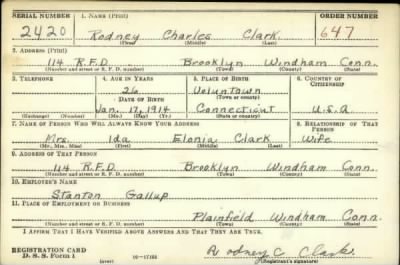 SERIAL NUMBER 1. NAME (Print) ORDER NUMBER
2420 Rodney Charles Clark. 647
(First) (Middle) (Last)
2. ADDRESS (Print)
114 R.F.D Brooklyn Windham Conn.
(Number and street or R. F. D. number) (Town) (County) (State)
3. TELEPHONE 4. AGE IN YEARS 5. PLACE OF BIRTH 6. COUNTRY OF CITIZENSHIP
26 Voluntown
DATE OF BIRTH (Town or county)
Jan. 17, 1914 Connecticut U.S.A
(Exchange) (Number) (Mo.) (Day) (Yr.) (State or country)
7. NAME OF PERSON WHO WILL ALWAYS KNOW YOUR ADDRESS 8. RELATIONSHIP OF THAT PERSON
Mrs. Ida Elonia Clark Wife
(Mr., Mrs., Miss) (First) (Middle) (Last)
9. ADDRESS OF THAT PERSON
114 R.F.D Brooklyn Windham Conn.
(Number and street or R. F. D. number) (Town) (County) (State)
10. EMPLOYER'S NAME
Stanton Gallup
11. PLACE OF EMPLOYMENT OR BUSINESS
Plainfield Windham Conn.
(Number and street or R. F. D. number) (Town) (County) (State)
I AFFIRM THAT I HAVE VERIFIED ABOVE ANSWERS AND THAT THEY ARE TRUE.
REGISTRATION CARD Rodney C Clark
D. S. S. Form 1 (over) (Registrant's signature)